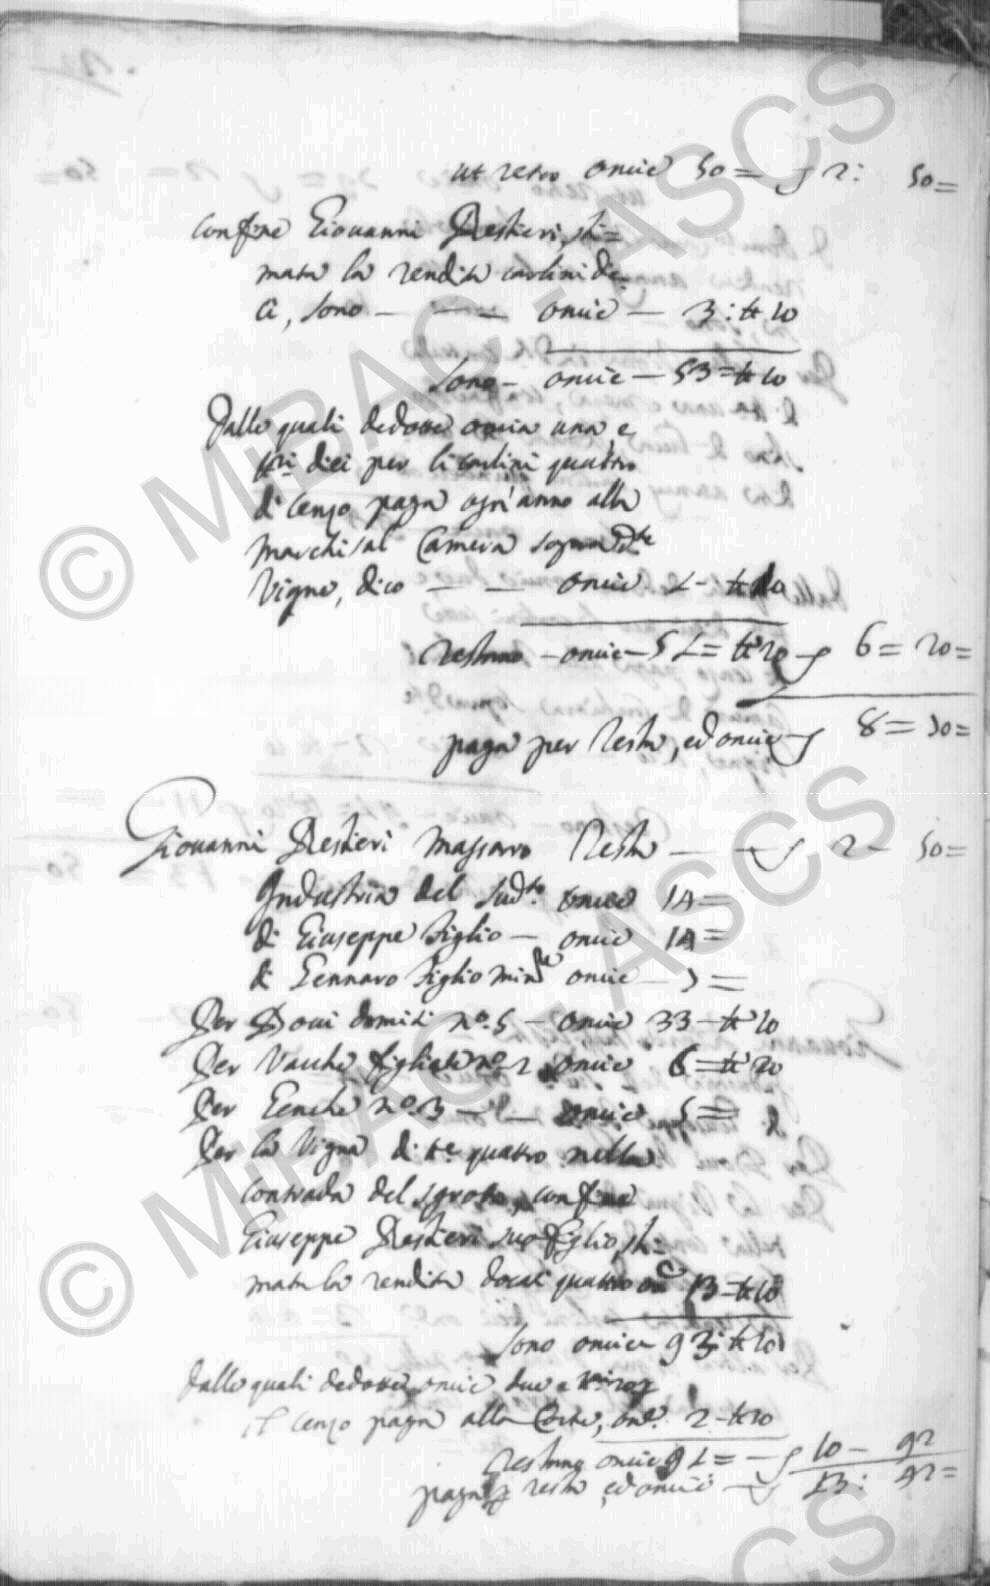 ut retro oncie 50= 2: 50=
confine Giovanni Restieri, sti=
mata la rendita carlini die=
ci, sono — — oncie — 3: tt 10
sono — oncie — 53 = tt 10
Dalle quali dedotte oncia una, e
trì dieci per li carlini quattro
di Cenzo paga ogn'anno alla
Marchisal Camera sopra dte
Vigne, dico — — oncie 1 - tt 10
restano — oncie — 51 = tt 20 6 = 20 =
paga per testa, ed oncie 8 = 30 =
Giovanni Restieri Massaro Testa — 2 - 50 =
Industria del sudto oncie 14 =
di Giuseppe figlio — oncie 14 =
di Gennaro figlio min. oncie
Per Bovi domiti no. 5 — oncie 33 - tt 10
Per Vacche figliate no. 2 oncie 6 = tt 20
Per Genche no. 3 — oncie 5 =
Per la Vigna di te. quattro nella
contrada del, confine
Giuseppe Restieri suo figlio, sti=
mata la rendita docati quattro on 13 - tt 10
sono oncie 93: tt 10
dalle quali dedotte oncie due e
il Cenzo paga alla Corte, onc. 2 - tt 10
restano oncie 91 = 10 — 92
paga testa, ed oncie 13: 42 =
© MIBAC - ASCS
© MIBAC - ASCS